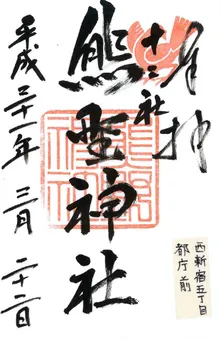 奉拝
十二社
熊野神社
平成三十一年三月二十二日
西新宿五丁目
都庁前